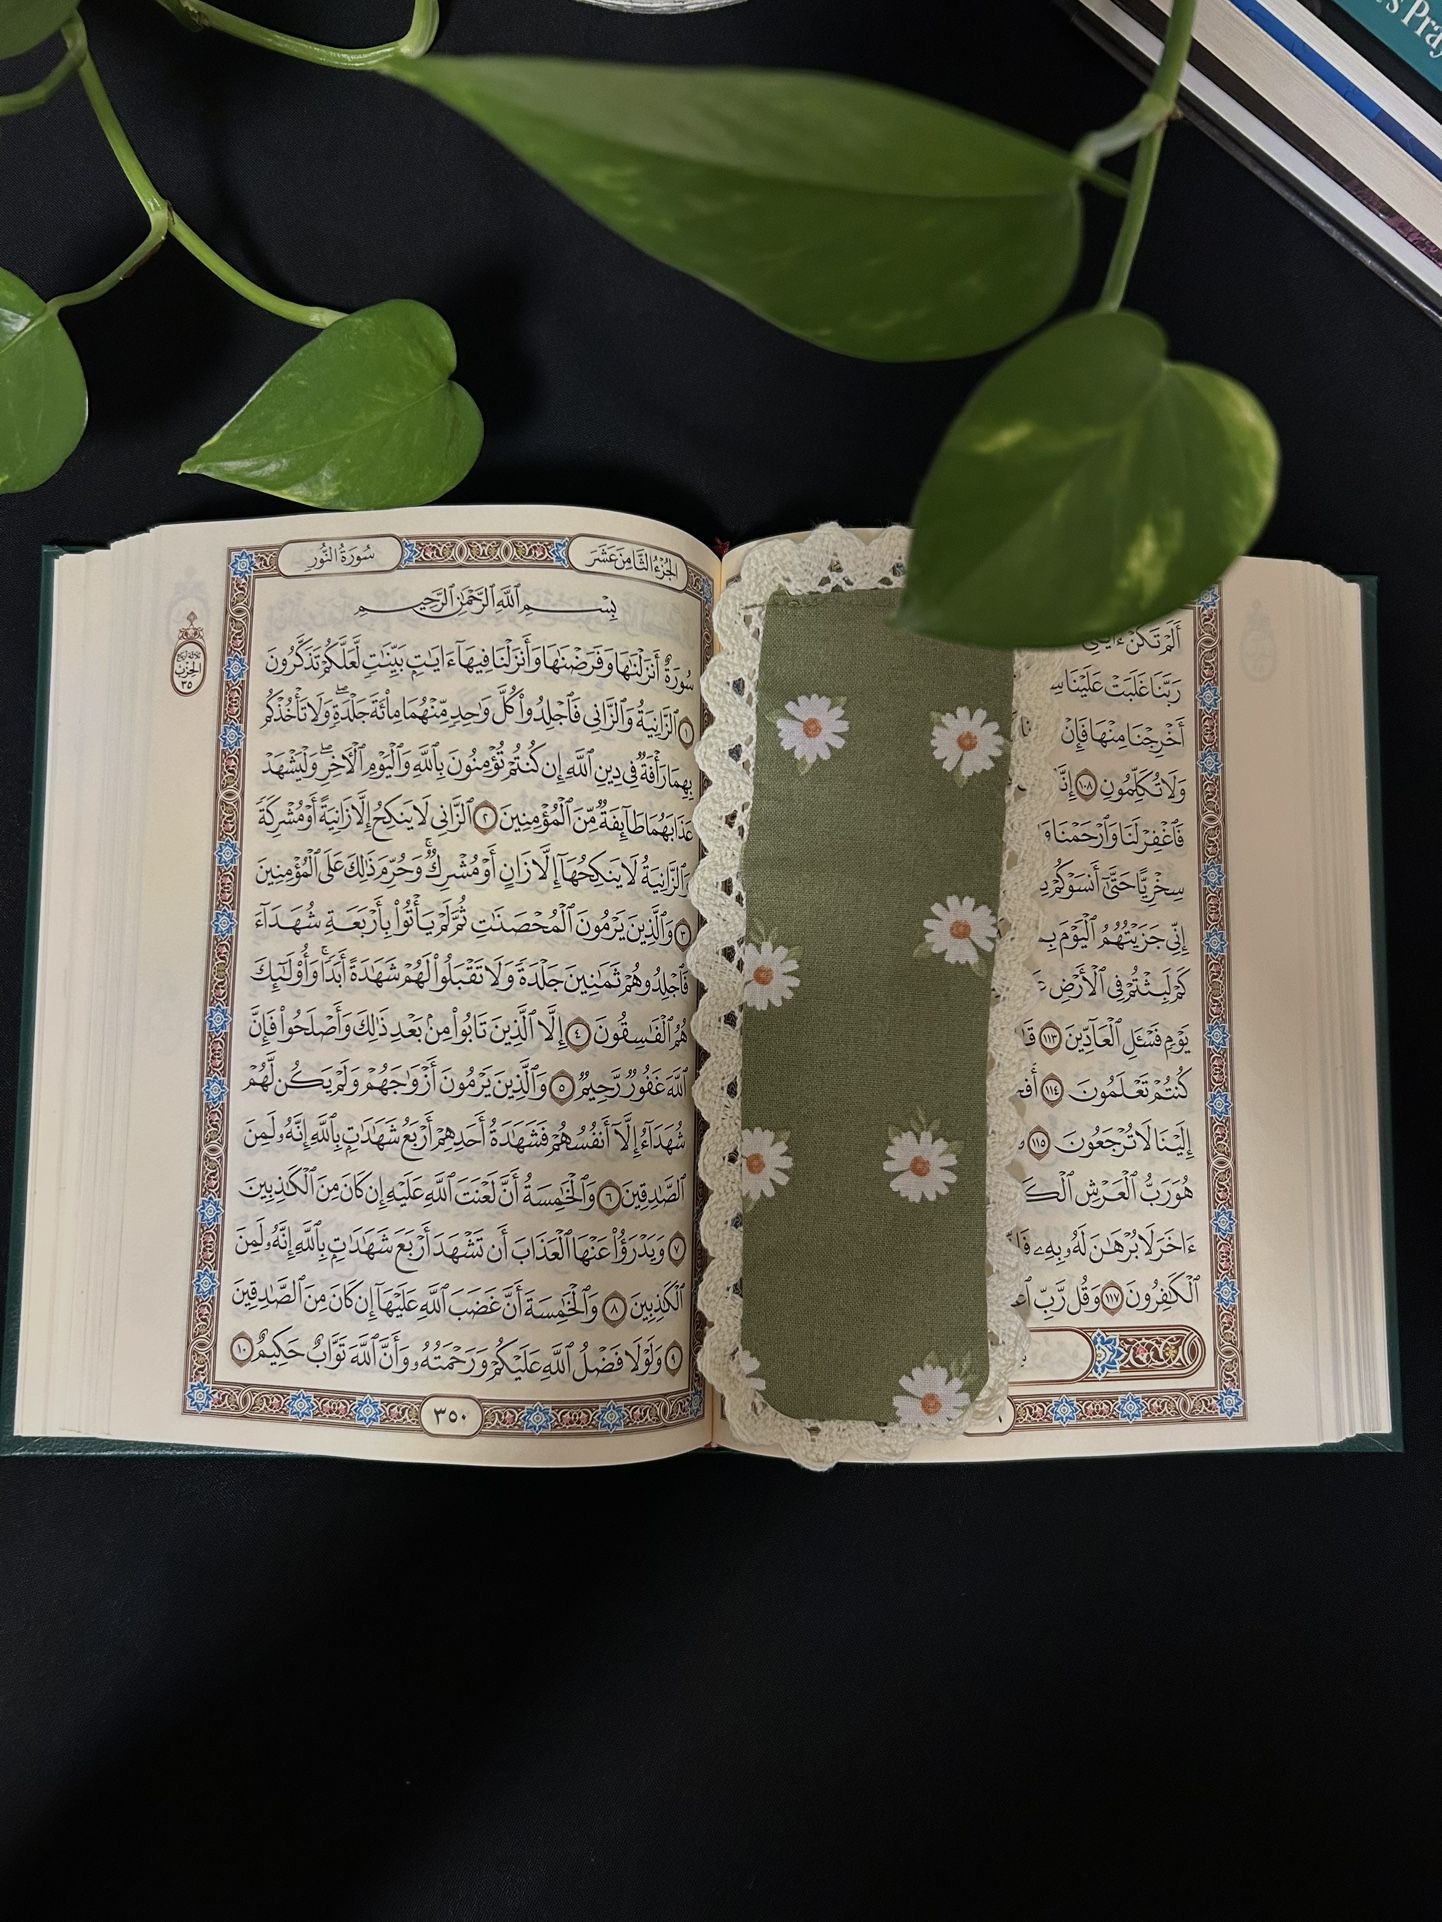 s Pray
أَلَمْ تَكُنْ ءَايَٰتِى
رَبَّنَا غَلَبَتْ عَلَيْنَا
أَخْرِجْنَا مِنْهَا فَإِنْ
وَلَا تُكَلِّمُونِ ١٠٨ إِنَّ
فَٱغْفِرْ لَنَا وَٱرْحَمْنَا وَ
سِخْرِيًّا حَتَّىٰٓ أَنسَوْكُمْ ذِ
إِنِّى جَزَيْتُهُمُ ٱلْيَوْمَ بِ
كَمْ لَبِثْتُمْ فِى ٱلْأَرْضِ
يَوْمٍ فَسْـَٔلِ ٱلْعَآدِّينَ ١١٣ قَ
كُنتُمْ تَعْلَمُونَ ١١٤ أَفَ
إِلَيْنَا لَا تُرْجَعُونَ ١١٥
هُوَ رَبُّ ٱلْعَرْشِ ٱلْكَ
ءَاخَرَ لَا بُرْهَٰنَ لَهُۥ بِهِۦ فَإِ
ٱلْكَٰفِرُونَ ١١٧ وَقُل رَّبِّ ٱغْ
الجُزْءُ الثَّامِنَ عَشَرَ
سُورَةُ النُّور
بِسْمِ ٱللَّهِ ٱلرَّحْمَٰنِ ٱلرَّحِيمِ
سُورَةٌ أَنزَلْنَٰهَا وَفَرَضْنَٰهَا وَأَنزَلْنَا فِيهَآ ءَايَٰتٍۭ بَيِّنَٰتٍ لَّعَلَّكُمْ تَذَكَّرُونَ
١ ٱلزَّانِيَةُ وَٱلزَّانِى فَٱجْلِدُوا۟ كُلَّ وَٰحِدٍ مِّنْهُمَا مِا۟ئَةَ جَلْدَةٍ ۖ وَلَا تَأْخُذْكُم
بِهِمَا رَأْفَةٌ فِى دِينِ ٱللَّهِ إِن كُنتُمْ تُؤْمِنُونَ بِٱللَّهِ وَٱلْيَوْمِ ٱلْـَٔاخِرِ ۖ وَلْيَشْهَدْ
عَذَابَهُمَا طَآئِفَةٌ مِّنَ ٱلْمُؤْمِنِينَ ٢ ٱلزَّانِى لَا يَنكِحُ إِلَّا زَانِيَةً أَوْ مُشْرِكَةً
وَٱلزَّانِيَةُ لَا يَنكِحُهَآ إِلَّا زَانٍ أَوْ مُشْرِكٌ ۚ وَحُرِّمَ ذَٰلِكَ عَلَى ٱلْمُؤْمِنِينَ
٣ وَٱلَّذِينَ يَرْمُونَ ٱلْمُحْصَنَٰتِ ثُمَّ لَمْ يَأْتُوا۟ بِأَرْبَعَةِ شُهَدَآءَ
فَٱجْلِدُوهُمْ ثَمَٰنِينَ جَلْدَةً وَلَا تَقْبَلُوا۟ لَهُمْ شَهَٰدَةً أَبَدًا ۚ وَأُو۟لَٰٓئِكَ
هُمُ ٱلْفَٰسِقُونَ ٤ إِلَّا ٱلَّذِينَ تَابُوا۟ مِنۢ بَعْدِ ذَٰلِكَ وَأَصْلَحُوا۟ فَإِنَّ
ٱللَّهَ غَفُورٌ رَّحِيمٌ ٥ وَٱلَّذِينَ يَرْمُونَ أَزْوَٰجَهُمْ وَلَمْ يَكُن لَّهُمْ
شُهَدَآءُ إِلَّآ أَنفُسُهُمْ فَشَهَٰدَةُ أَحَدِهِمْ أَرْبَعُ شَهَٰدَٰتٍۭ بِٱللَّهِ ۙ إِنَّهُۥ لَمِنَ
ٱلصَّٰدِقِينَ ٦ وَٱلْخَٰمِسَةُ أَنَّ لَعْنَتَ ٱللَّهِ عَلَيْهِ إِن كَانَ مِنَ ٱلْكَٰذِبِينَ
٧ وَيَدْرَؤُا۟ عَنْهَا ٱلْعَذَابَ أَن تَشْهَدَ أَرْبَعَ شَهَٰدَٰتٍۭ بِٱللَّهِ ۙ إِنَّهُۥ لَمِنَ
ٱلْكَٰذِبِينَ ٨ وَٱلْخَٰمِسَةَ أَنَّ غَضَبَ ٱللَّهِ عَلَيْهَآ إِن كَانَ مِنَ ٱلصَّٰدِقِينَ
٩ وَلَوْلَا فَضْلُ ٱللَّهِ عَلَيْكُمْ وَرَحْمَتُهُۥ وَأَنَّ ٱللَّهَ تَوَّابٌ حَكِيمٌ ١٠
٣٥٠
الحزب
٣٥